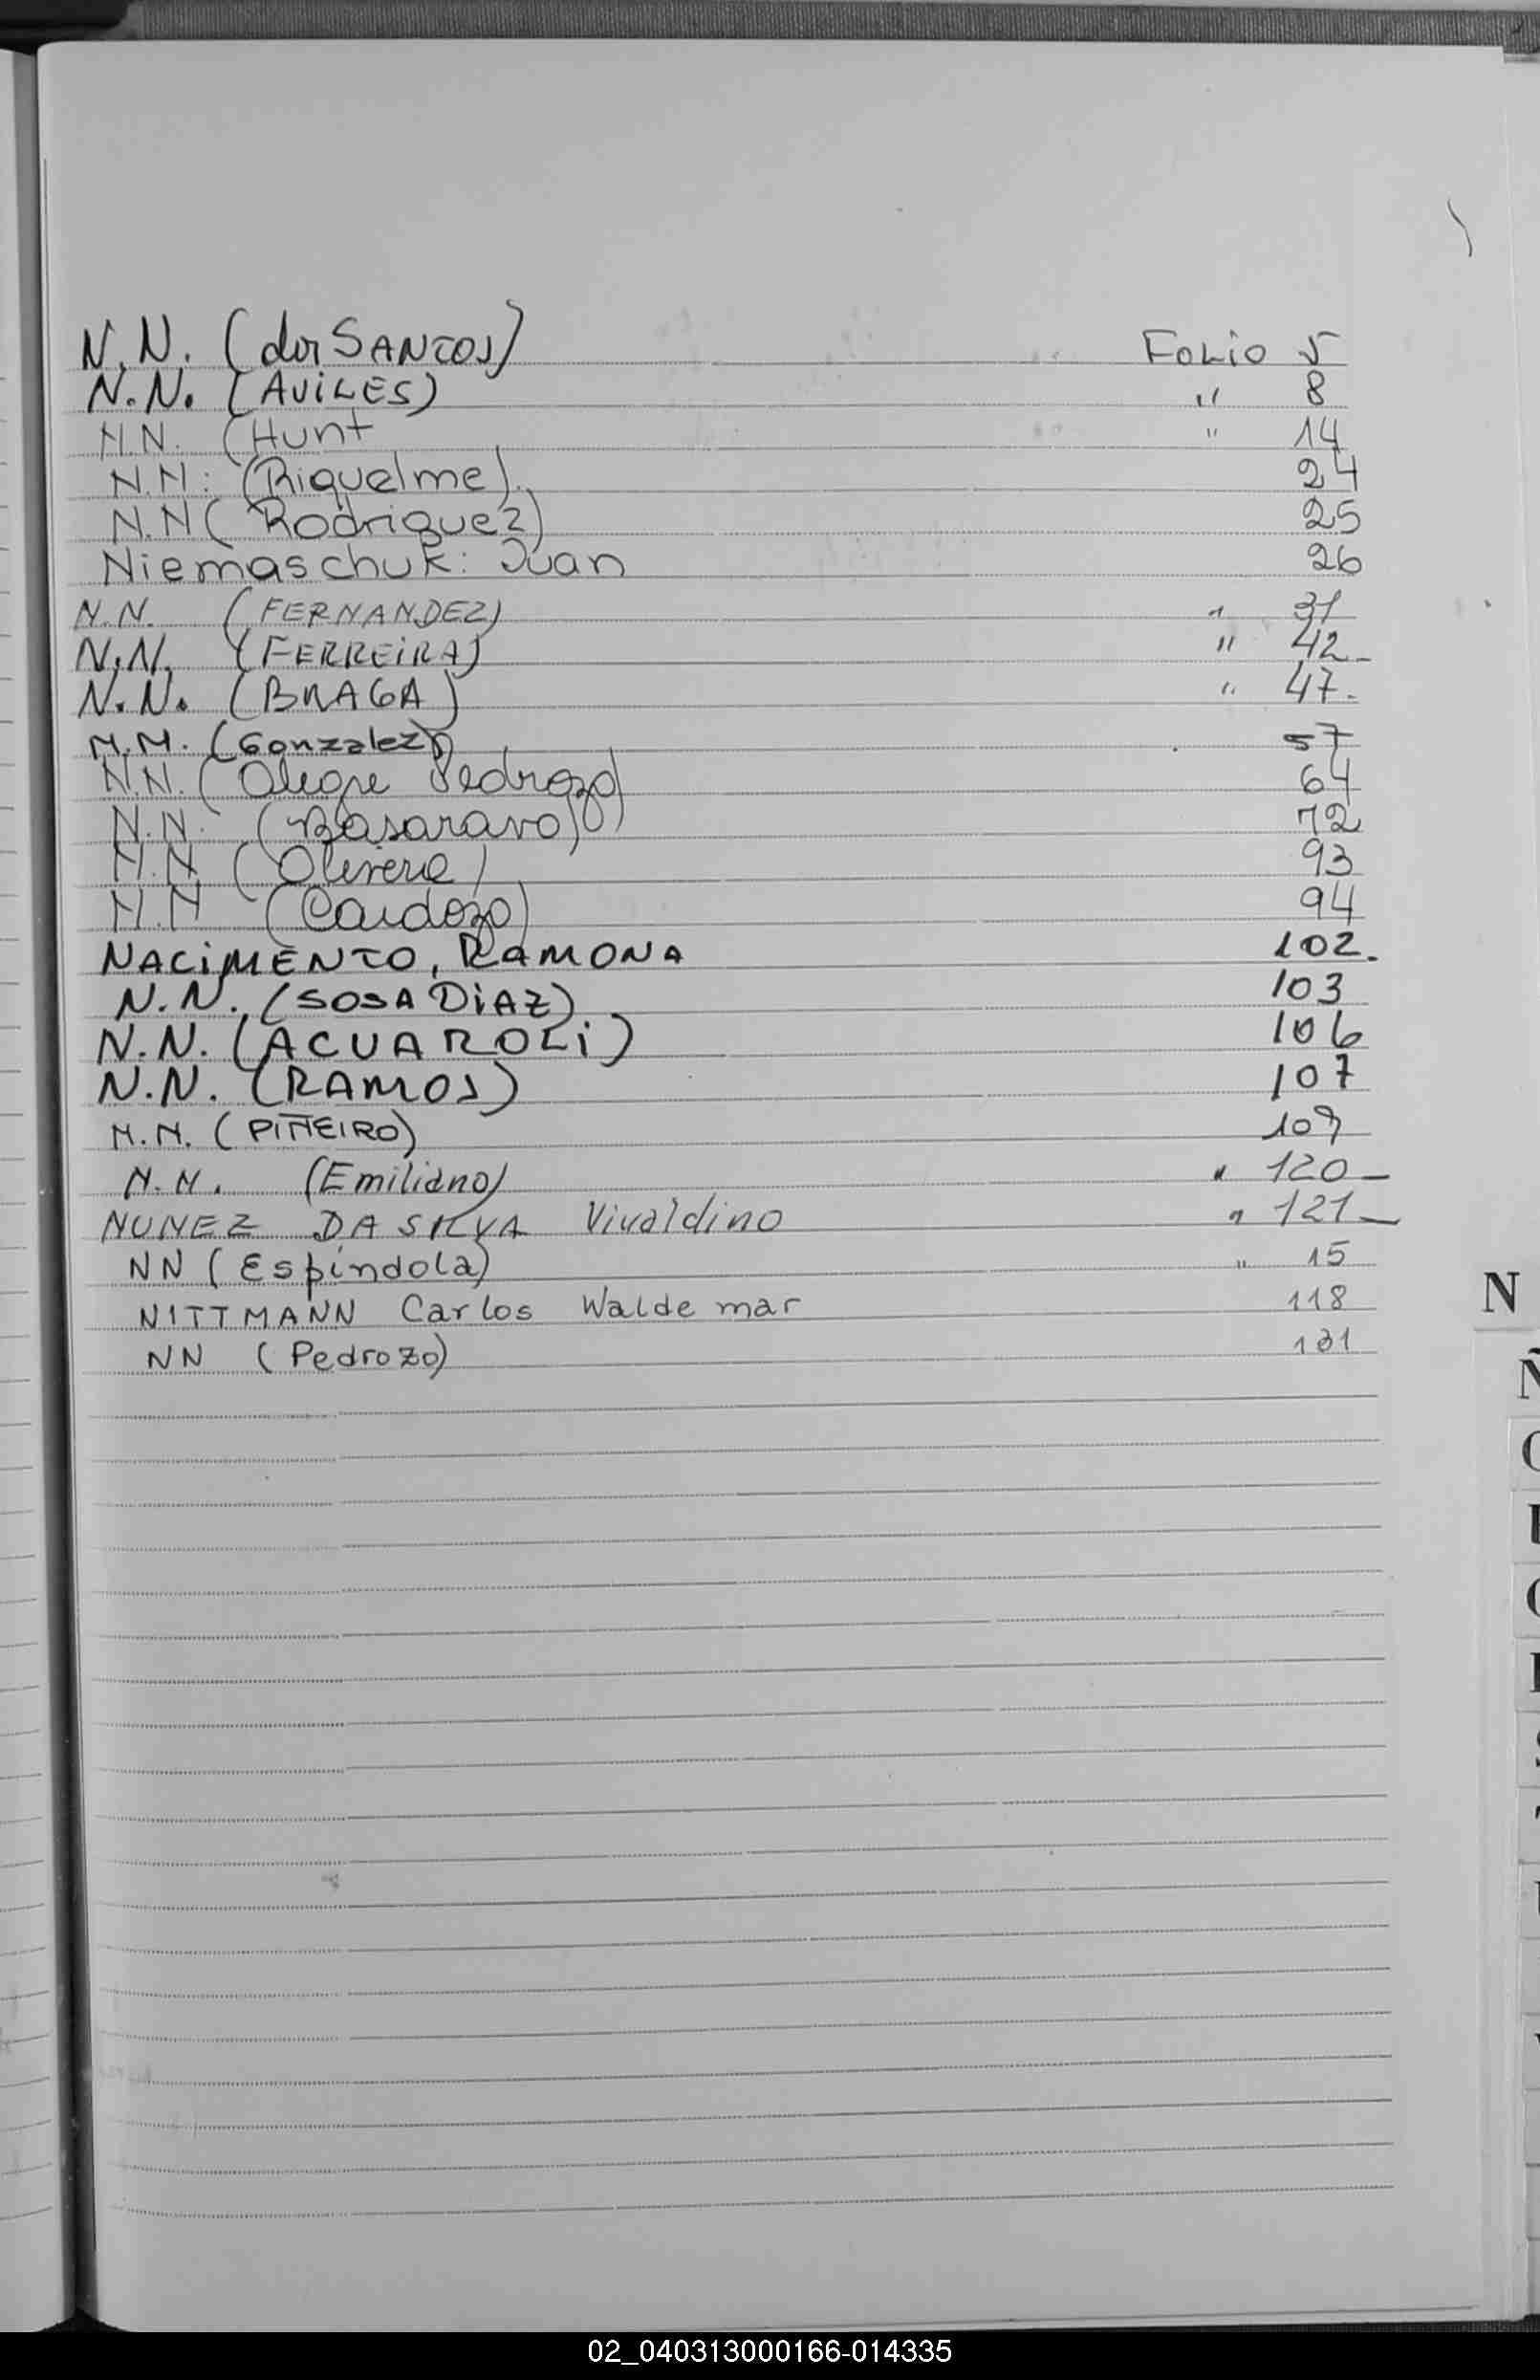 N.N. (dos SANTOS) FOLIO 5
N.N. (AVILES) " 8
N.N. (Hunt " 14
N.N. (Riquelme). 24
N.N ( Rodriguez) 25
Niemaschuk: Juan 26
N.N. (FERNANDEZ) " 31
N.N. (FERREIRA) " 42
N.N. (BRAGA) " 47.
N.N. (Gonzalez) 57
N.N. (Alegre Pedrozo) 64
N.N. (Basaravo) 72
N.N (Olivera) 93
N.N (Cardozo) 94
NACIMENTO, RAMONA 102.
N.N. (SOSA DIAZ) 103
N.N. (ACUAROLI) 106
N.N. (RAMOS) 107
N.N. (PIÑEIRO) 109
N.N. (Emiliano) " 120
NUNEZ DA SILVA Vivaldino " 121
NN (Espindola) " 15
NITTMANN Carlos Waldemar 118
NN (Pedrozo) 131
N
Ñ
02_040313000166-014335